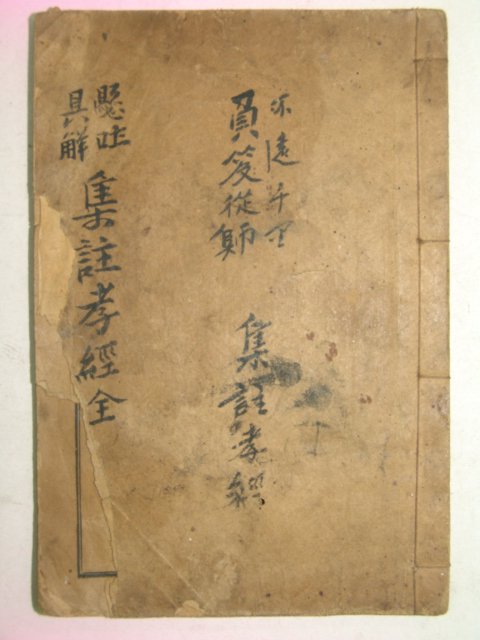 不遠千里
負笈從師
集註孝經
懸吐
具解
集註孝經全